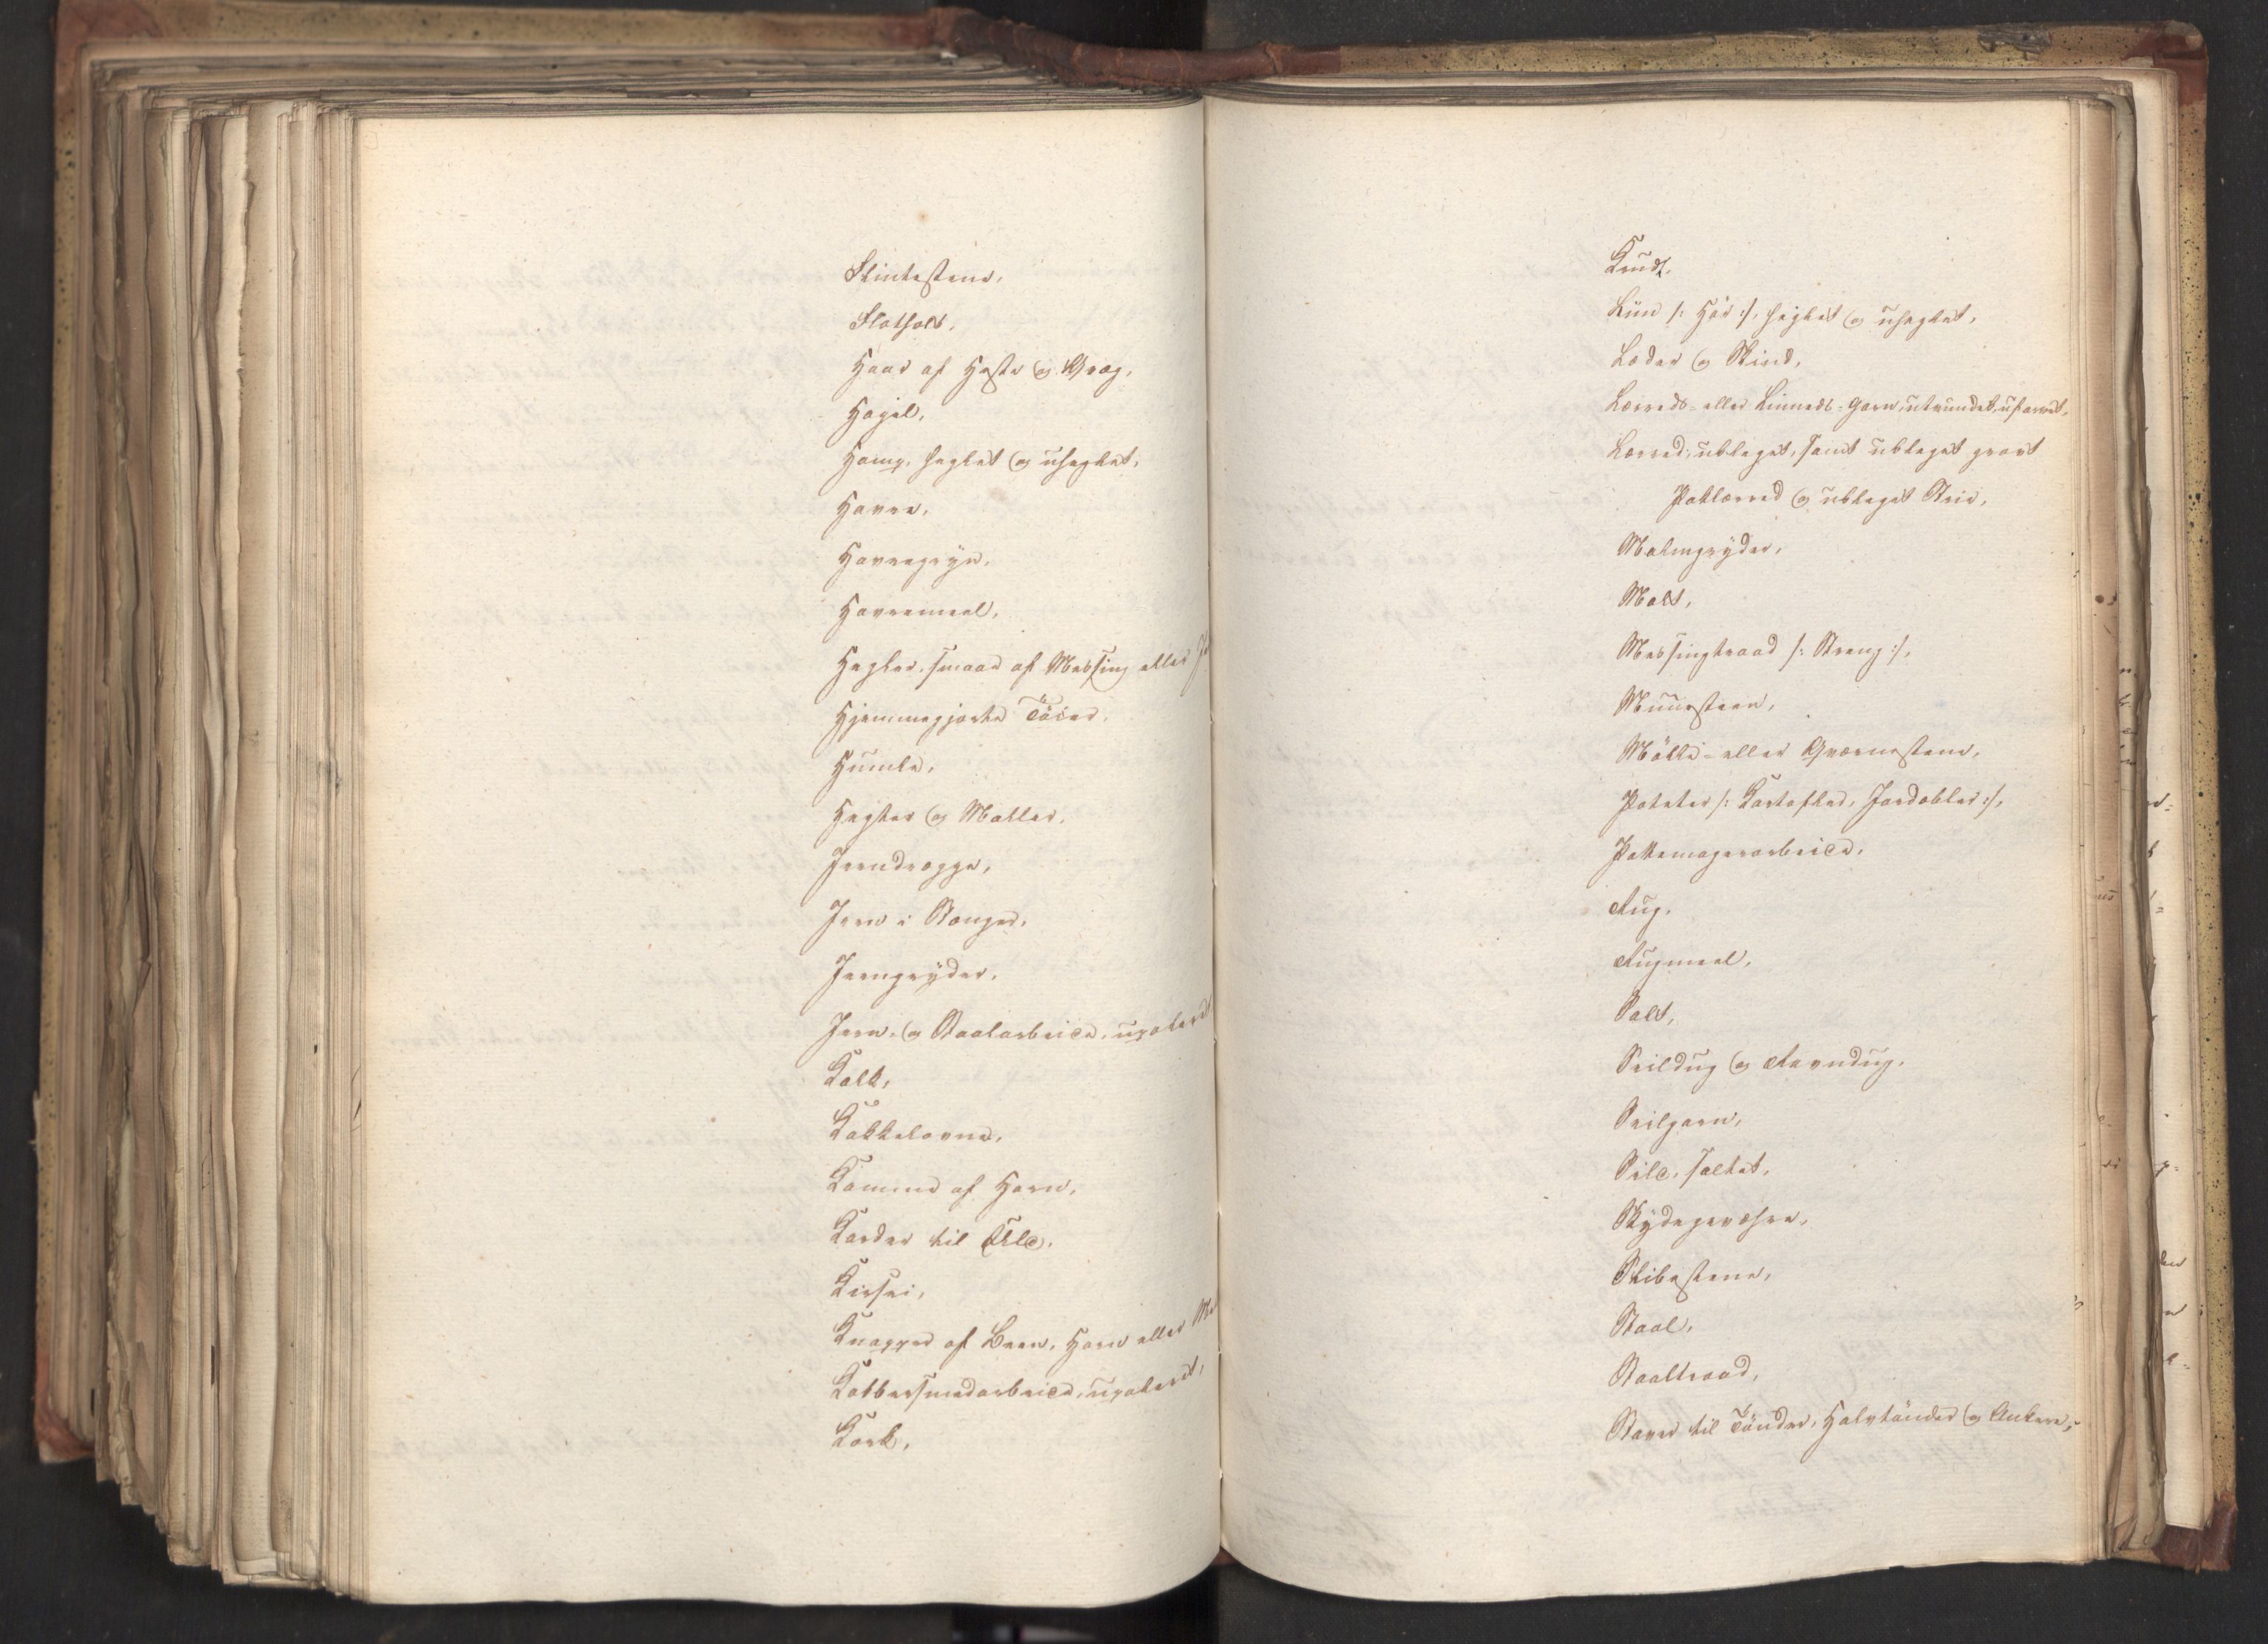 Flintestene,
Flothold,
Haar af Heste og Qvæg,
Hagel,
Hamp, heglet og uheglet,
Havre,
Havregryn,
Havremeel,
Hegler, smaae af Messing eller
Hjemmegjorte Töier,
Humle,
Hegter og Maller,
Jerndragge,
Jern i Stænger,
Jerngryder,
Jern- og Staalarbeide, upoleret
Kalk,
Kakkelovne,
Kamme af Horn,
Karder til Uld,
Kirsei,
Knapper af Been, Horn eller
Kobbersmedarbeide, upoleret,
Kork,
Krudt,
Liin /: Hör :/, heglet og uheglet,
Læder og Skind,
Lærreds- eller Linneds-Garn, utvundet, ufarvet,
Lærred, ubleget, samt ubleget grovt
Paklærred og ubleget Strie,
Malmgryder,
Malt,
Messingtraad /: Streng :/,
Muursteen,
Mölle- eller Qværnestene,
Poteter /: Kartofler, Jordæbler :/,
Pottemagerarbeide,
Rug,
Rugmeel,
Salt,
Seildug og Ravndug,
Seilgarn,
Sild, saltet,
Skydegevæhre,
Slibestene,
Staal,
Staaltraad,
Staver til Tönder, Halvtönder og Ankere,